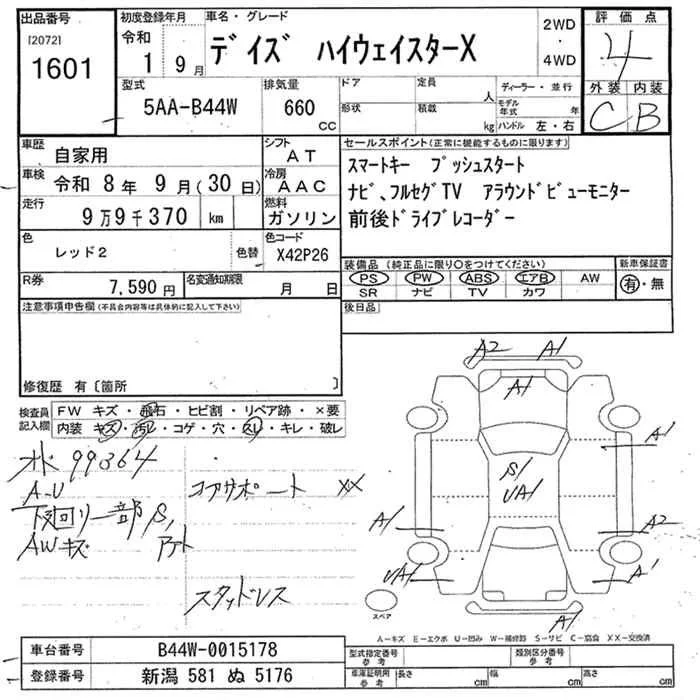 出品番号
[2072]
1601
初度登録年月
令和
1 9月
車名・グレード
デイズ ハイウェイスターX
2WD
・
4WD
評価点
4
外装 内装
C B
型式
5AA-B44W
排気量
660
CC
ドア
形状
定員
人
積載
kg
ディーラー・並行
モデル年式 年
ハンドル 左・右
車歴
自家用
シフト
AT
車検
令和 8年 9月(30日)
冷房
AAC
走行
9万9千370 km
燃料
ガソリン
色
レッド2
色替
色コード
X42P26
R券
7,590円
名変通知期限
月 日
セールスポイント(正常に機能するものに限ります)
スマートキー プッシュスタート
ナビ、フルセグTV アラウンドビューモニター
前後ドライブレコーダー
装備品(純正品に限り○をつけてください)
PS PW ABS エアB AW
SR ナビ TV カワ
新車保証書
有・無
後日品
注意事項申告欄(不具合内容等は具体的に記入して下さい)
修復歴 有〔箇所 〕
検査員記入欄
FW キズ・飛石・ヒビ割・リペア跡・×要
内装 キズ・汚レ・コゲ・穴・スレ・キレ・破レ
99364
A-U
コアサポート XX
下回り一部S,
AWキズ
スタッドレス
A2 A1
A1
A1
S1
UA1
A1
A2
UA1
A1
A1
スペア
A-キズ E-エクボ U-凹み W-補修跡 S-サビ C-腐食 XX-交換済
車台番号
B44W-0015178
登録番号
新潟 581 ぬ 5176
型式指定番号
参考
類別区分番号
参考
車庫証明用
参考
長さ cm
幅 cm
高さ cm